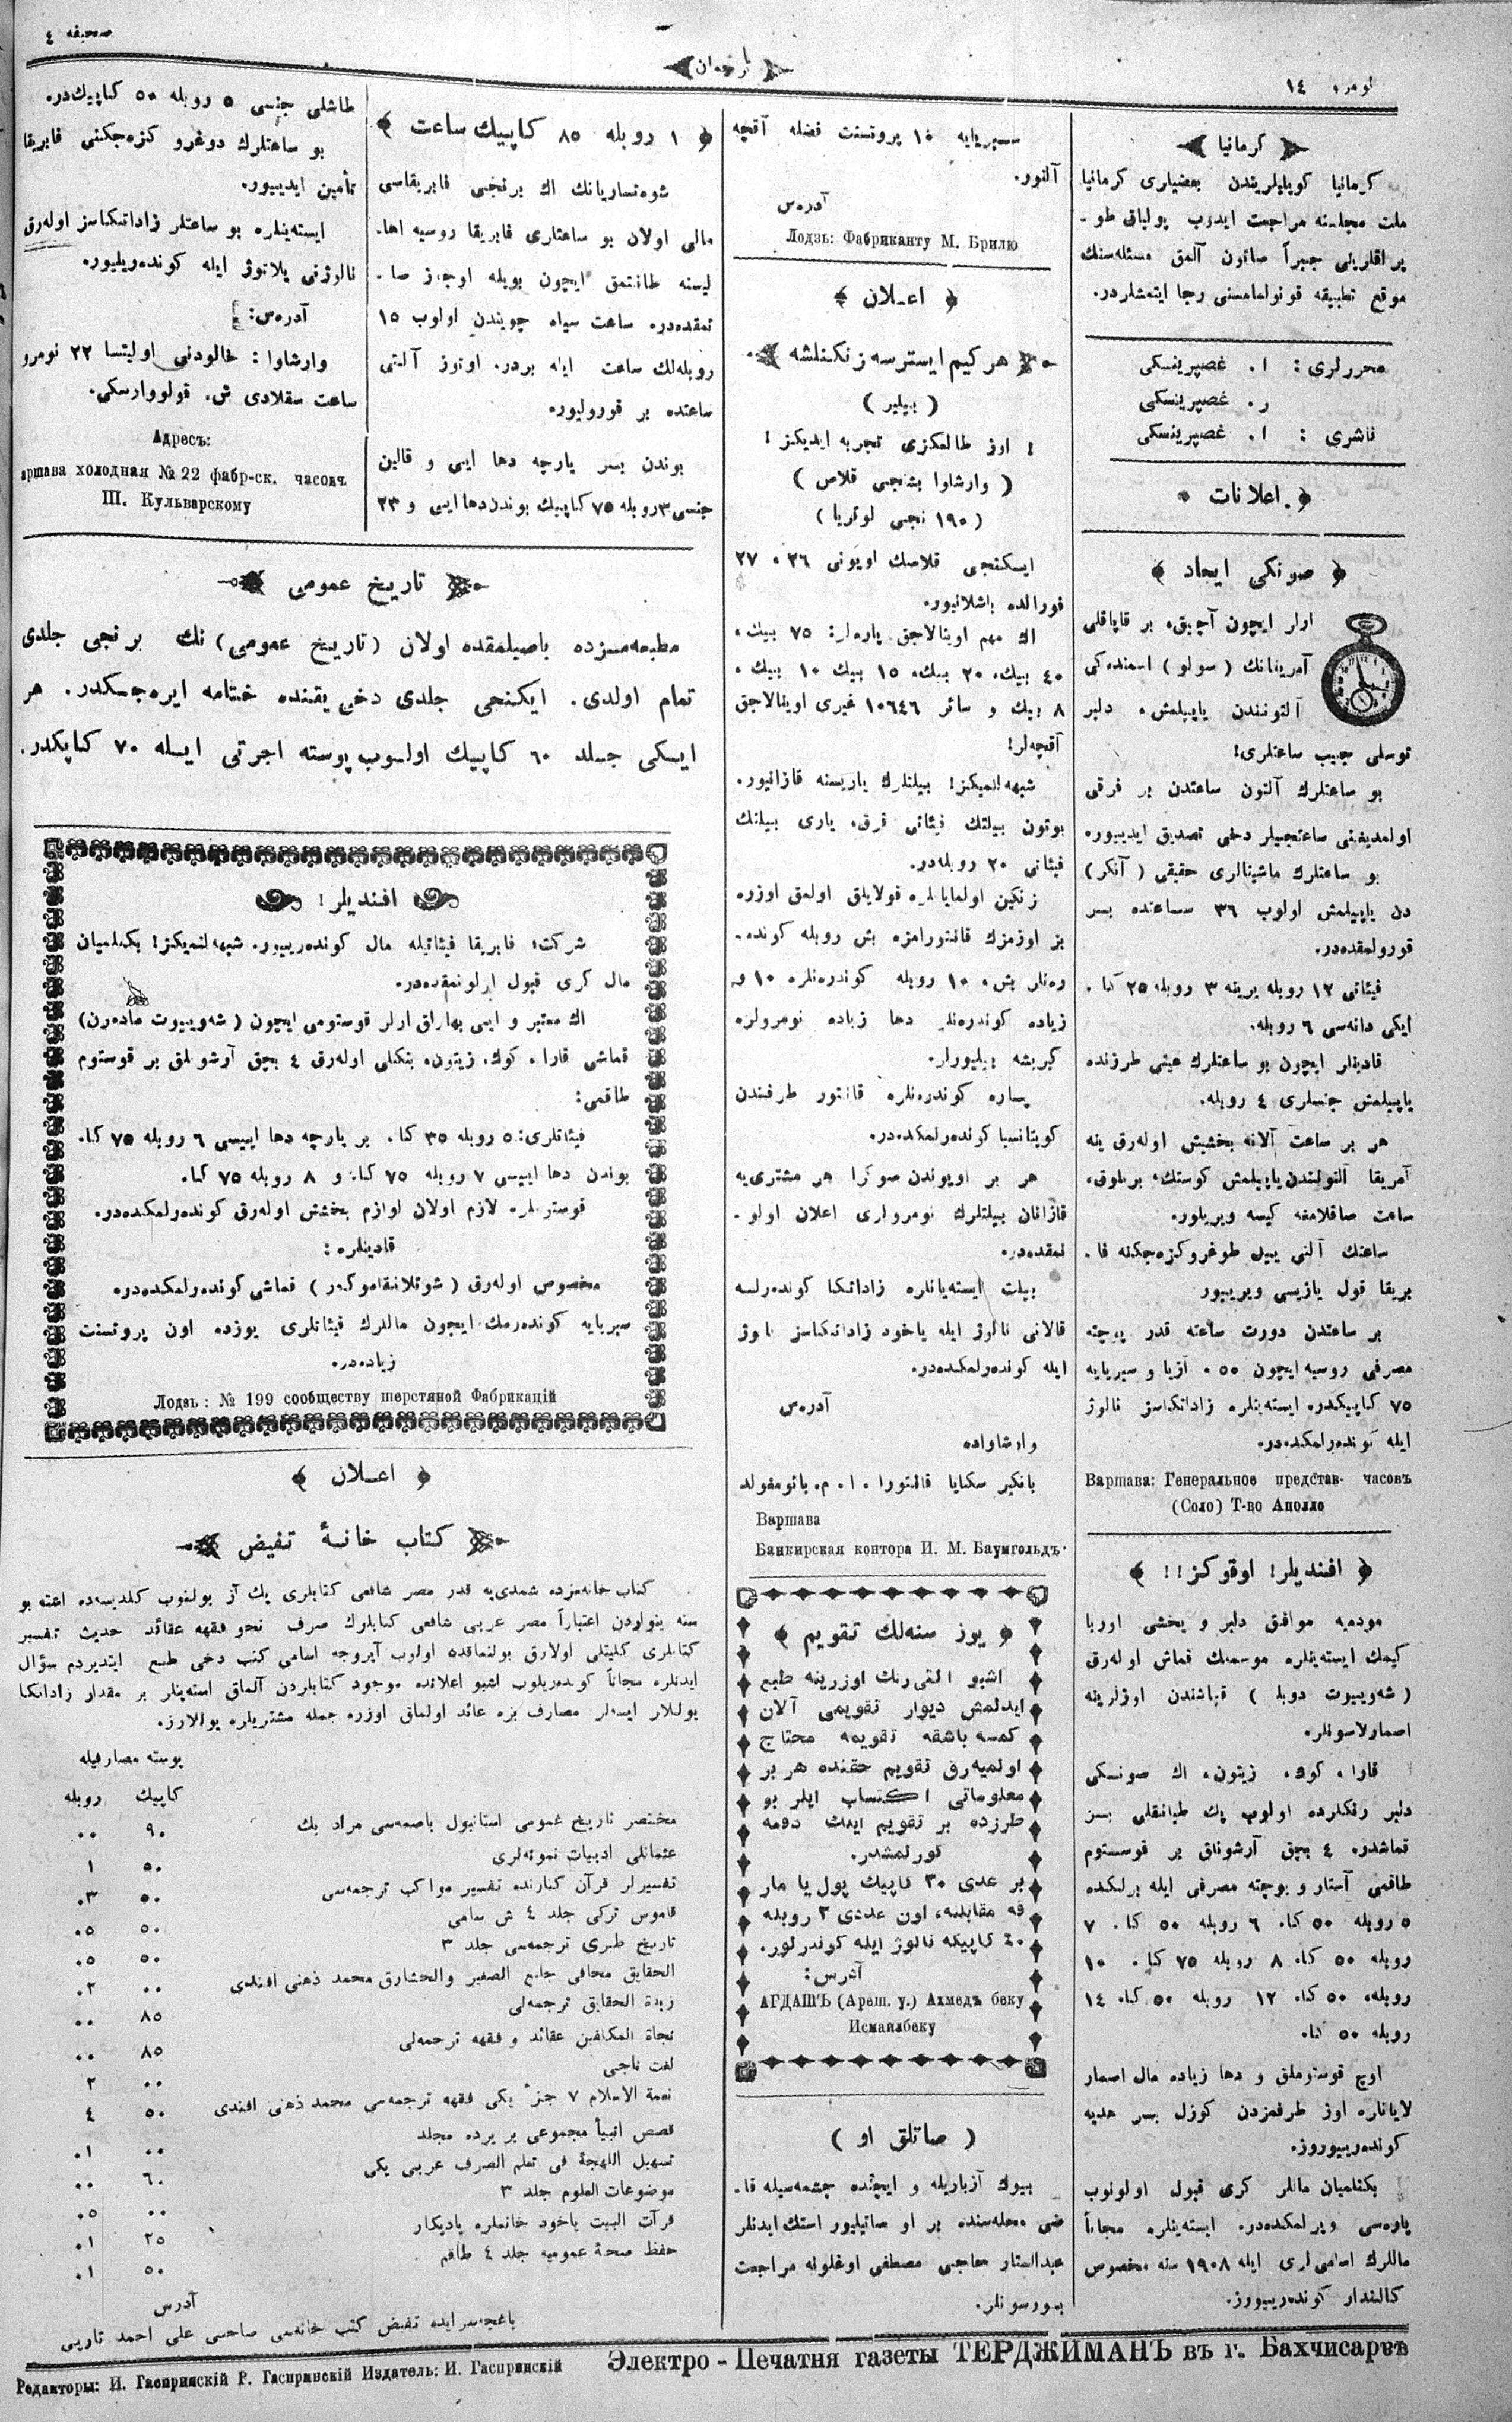 نومرو ١٤
ترجمان
صحیفه ٤
كرمانیا
كرمانیا كویلیلریندن بعضیلری كرمانیا
ملت مجلسنه مراجعت ایدوب پولیاق طو-
پراقلرینی جبراً صاتون آلمق مسئله‌سنك
موقع تطبیقه قونولمامسنی رجا ایتمشلردر.
محررلری: ا. غصپرینسكی
ر. غصپرینسكی
ناشری: ا. غصپرینسكی
اعلانات
صونكی ایجاد
ارلر ایچون آچیق، بر قاپاقلی
آمریقانك (سولو) اسمنده‌كی
آلتونندن یاپیلمش، دلبر
توسلی جیب ساعتلری!
بو ساعتلرك آلتون ساعتدن بر فرقی
اولمدیغنی ساعتجیلر دخی تصدیق ایدییور.
بو ساعتلرك ماشینالری حقیقی (آنكر)
دن یاپیلمش اولوب ٣٦ ساعتده بر
قورولمقده‌در.
فیئاتی ١٢ روبله یرینه ٣ روبله ٢٥ كا.
ایكی دانه‌سی ٦ روبله.
قادینلر ایچون بو ساعتلرك عینی طرزنده
یاپیلمش جنسلری ٤ روبله.
هر بر ساعت آلانه بخشیش اوله‌رق ینه
آمریقا آلتونندن یاپیلمش كوستك، برلوق،
ساعت صاقلامغه كیسه ویریلور.
ساعتك آلتی ییل طوغرو كزه‌جكنه فا-
بریقا قول یازیسی ویرییور
بر ساعتدن دورت ساعته قدر پوچته
مصرفی روسیه ایچون ٥٠. آزیا و سیبریایه
٧٥ كاپیكدر. ایسته‌ینلره زاداتكاسز نالوژ
ایله كونده‌رلمكده‌در.
Варшава: Генеральное представ- часовъ
(Соло) Т-во Аполло
افندیلر! اوقوكز!!
مودمیه موافق دلبر و یخشی اوریا
كیمك ایسته‌ینلره موسملك قماش اوله‌رق
(شه‌وییوت دوبل) قماشندن اوزلرینه
اصمارلاسونلر.
قارا، كوك، زیتون، اك صونكی
دلبر رنكلرده اولوب پك طیانقلی بر
قماشدر. ٤ بچق آرشونلق بر قوستوم
طاقمی آستار و پوچته مصرفی ایله برلكده
٥ روبله ٥٠ كا. ٦ روبله ٥٠ كا. ٧
روبله ٥٠ كا. ٨ روبله ٧٥ كا. ١٠
روبله، ٥٠ كا. ١٢ روبله ٥٠ كا. ١٤
روبله ٥٠ كا.
اوچ قوستوملق و دها زیاده مال اصمار
لایانلره اوز طرفمزدن كوزل بر هدیه
كونده‌ریبوروز.
بكنلمیان ماللر كری قبول اولونوب
پاره‌سی ویرلمكده‌در. ایسته‌ینلره مجاناً
ماللرك اسامی‌لری ایله ١٩٠٨ سنه مخصوص
كالندار كونده‌رییورز.
سیبریایه ١٠ پروتسنت فضله آقچه
آلنور.
آدره‌س
Лодзь: Фабриканту М. Брилю
اعلان
هر كیم ایسترسه زنكنلشه
(بیلیر)
! اوز طالعكزی تجربه ایدیكز!
(وارشاوا بشنجی قلاس)
(١٩٠ نجی لوتریا)
ایكنجی قلاسك اویونی ٢٦، ٢٧
فورالده باشلانیور.
اك مهم اوینالاجق پاره‌لر: ٧٥ بیك،
٤٠ بیك، ٢٠ بیك، ١٥ بیك ١٠ بیك،
٨ بیك و سائر ١٠٦٤٦ غیری اوینالاجق
آقچه‌لر!
شبهه ایتمیكز! بیلتلرك یاریسنه قازانیور.
بوتون بیلتك فیئاتی قرق، یاری بیلتك
فیئاتی ٢٠ روبله‌در.
زنكین اولمایانلره قولایلق اولمق اوزره
بز اوزمزك قانتورامزه بش روبله كونده-
ره‌نلر بش، ١٠ روبله كوندره‌نلره ١٠ و
زیاده كوندره‌نلر دها زیاده نومرولره
كیریشه بیلیورلر.
پاره كوندره‌نلره قانتور طرفندن
كویتانسیا كونده‌رلمكده‌در.
هر بر اویوندن صوكرا هر مشتری‌یه
قازانان بیلتلرك نومرولری اعلان اولو-
نمقده‌در.
بیلت ایسته‌یانلره زاداتكا كونده‌رلسه
قالانی نالوژ ایله یاخود زاداتكاسز نالوژ
ایله كونده‌رلمكده‌در.
آدره‌س
وارشاواده
بانكیرسكایا قانتورا. ا. م. بائومغولد
Варшава
Банкирская контора И. М. Баумгольдъ.
یوز سنه‌لك تقویم
اشبو التی رنك اوزرینه طبع
ایدلمش دیوار تقویمی آلان
كمسه باشقه تقویمه محتاج
اولمیه‌رق تقویم حقنده هر بر
معلوماتی اكتساب ایلر بو
طرزده بر تقویم ایلك دفعه
كورلمشدر.
بر عددی ٣٠ كاپیك پول یا مار
قه مقابلنه، اون عددی ٢ روبله
٤٠ كاپیكه نالوژ ایله كوندرلور.
آدرس:
АГДАШЪ (Ареш. у.) Ахмедъ беку
Исмаилбеку
(صاتلق او)
بیوك آزباریله و ایچنده چشمه‌سیله قا-
ضی محله‌سنده بر او صاتیلیور استك ایدنلر
عبدالستار حاجی مصطفی اوغلونه مراجعت
بیورسونلر.
١ روبله ٨٥ كاپیك ساعت
شوه‌تساریانك اك برنجی فابریقاسی
مالی اولان بو ساعتلری فابریقا روسیه اها-
لیسنه طانتمق ایچون بویله اوجوز صا-
تمقده‌در. ساعت سیاه چویندن اولوب ١٥
روبله‌لك ساعت ایله بردر. اوتوز آلتی
ساعتده بر قورولیور.
بوندن بر پارچه دها ایی و قالین
جنسی ٣ روبله ٧٥ كاپیك بوندن دها ایی و ٢٣
طاشلی جنسی ٥ روبله ٥٠ كاپیك‌در.
بو ساعتلرك دوغرو كزه‌جكنی فابریقا
تأمین ایدییور.
ایسته‌ینلره بو ساعتلر زاداتكاسز اوله‌رق
نالوژنی پلاتوژ ایله كونده‌ریلیور.
آدره‌س:
وارشاوا: خالودنی اولیتسا ٢٢ نومرو
ساعت سقلادی ش. قولووارسكی.
Адресъ:
аршава холодная № 22 фабр-ск. часовъ
Ш. Кульварскому
تاریخ عمومی
مطبعه‌مزده باصیلمقده اولان (تاریخ عمومی) نك برنجی جلدی
تمام اولدی. ایكنجی جلدی دخی یقنده ختامه ایره‌جكدر. هر
ایكی جلد ٦٠ كاپیك اولوب پوسته اجرتی ایله ٧٠ كاپكدر.
افندیلر!
شركت؛ فابریقا فیئاتیله مال كونده‌رییور. شبهه‌لنمیكز! بكنلمیان
مال كری قبول اولونمقده‌در.
اك معتبر و ایی بهارلق ارلر قوستومی ایچون (شه‌وییوت ماده‌رن)
قماشی قارا، كوك، زیتون، بنكلی اوله‌رق ٤ بچق آرشونلق بر قوستوم
طاقمی:
فیئاتلری: ٥ روبله ٣٥ كا. بر پارچه دها اییسی ٦ روبله ٧٥ كا.
بوندن دها اییسی ٧ روبله ٧٥ كا. و ٨ روبله ٧٥ كا.
قوستوملره لازم اولان لوازم بخشش اوله‌رق كونده‌رلمكده‌در.
قادینلره:
مخصوص اوله‌رق (شوتلاندقاموكه‌ر) قماشی كونده‌رلمكده‌در.
سیبریایه كونده‌رمك ایچون ماللرك فیئاتلری یوزده اون پروتسنت
زیاده‌در.
Лодзь: № 199 сообществу шерстяной Фабрикацій
اعلان
كتاب خانهٔ تفیض
كتاب خانه‌مزده شمدی‌یه قدر مصر شافعی كتابلری پك آز بولنوب كلدیسه‌ده اشته بو
سنه ینواردن اعتباراً مصر عربی شافعی كتابلرك صرف نحو فقهه عقائد حدیث تفسیر
كتابلری كلیتلی اولارق بولنماقده اولوب آیروجه اسامی كتب دخی طبع ایتدیردم سؤال
ایدنلره مجاناً كونده‌ریلوب اشبو اعلانده موجود كتابلردن آلماق استه‌ینلر بر مقدار زاداتكا
یوللار ایسه‌لر مصارف بزه عائد اولماق اوزره جمله مشتریلره یوللارز.
پوسته مصارفیله
كاپیك روبله
مختصر تاریخ عمومی استانبول باصمه‌سی مراد بك ٩٠ ٠٠
عثمانلی ادبیات نمونه‌لری ٥٠ ١
تفسیرلر قرآن كنارنده تفسیر مواكب ترجمه‌سی ٥٠ ٣٠
قاموس تركی جلد ٤ ش سامی ٥٠ ٥٠
تاریخ طبری ترجمه‌سی جلد ٣ ٥٠ ٥٠
الحقایق محافی جامع الصغیر والحشارق محمد ذهنی افندی ٠٠ ٢٠
زبدة الحقایق ترجمه‌لی ٨٥ ٠٠
نجاة المكلفین عقائد و فقهه ترجمه‌لی ٨٥ ٠٠
لغت ناجی ٠٠ ٢
نعمة الاسلام ٧ جزء یكی فقهه ترجمه‌سی محمد ذهنی افندی ٥٠ ٤
قصص انبیأ مجموعی بر یرده مجلد ٠٠ ١٠
تسهیل اللهجة فی تعلم الصرف عربی یكی ٦٠ ٠٠
موضوعات العلوم جلد ٣ ٠٠ ٥٠
قرآت البیت یاخود خانملره یادیكار ٢٥ ١٠
حفظ صحهٔ عمومیه جلد ٤ طاقم ٥٠ ١٠
آدرس
باغچه‌سرایده تفیض كتب خانه‌سی صاحبی علی احمد تارپی
Редакторы: И. Гаспринскій Р. Гаспринскій Издатель: И. Гаспринскій
Электро-Печатня газеты ТЕРДЖИМАНЪ въ г. Бахчисараѣ